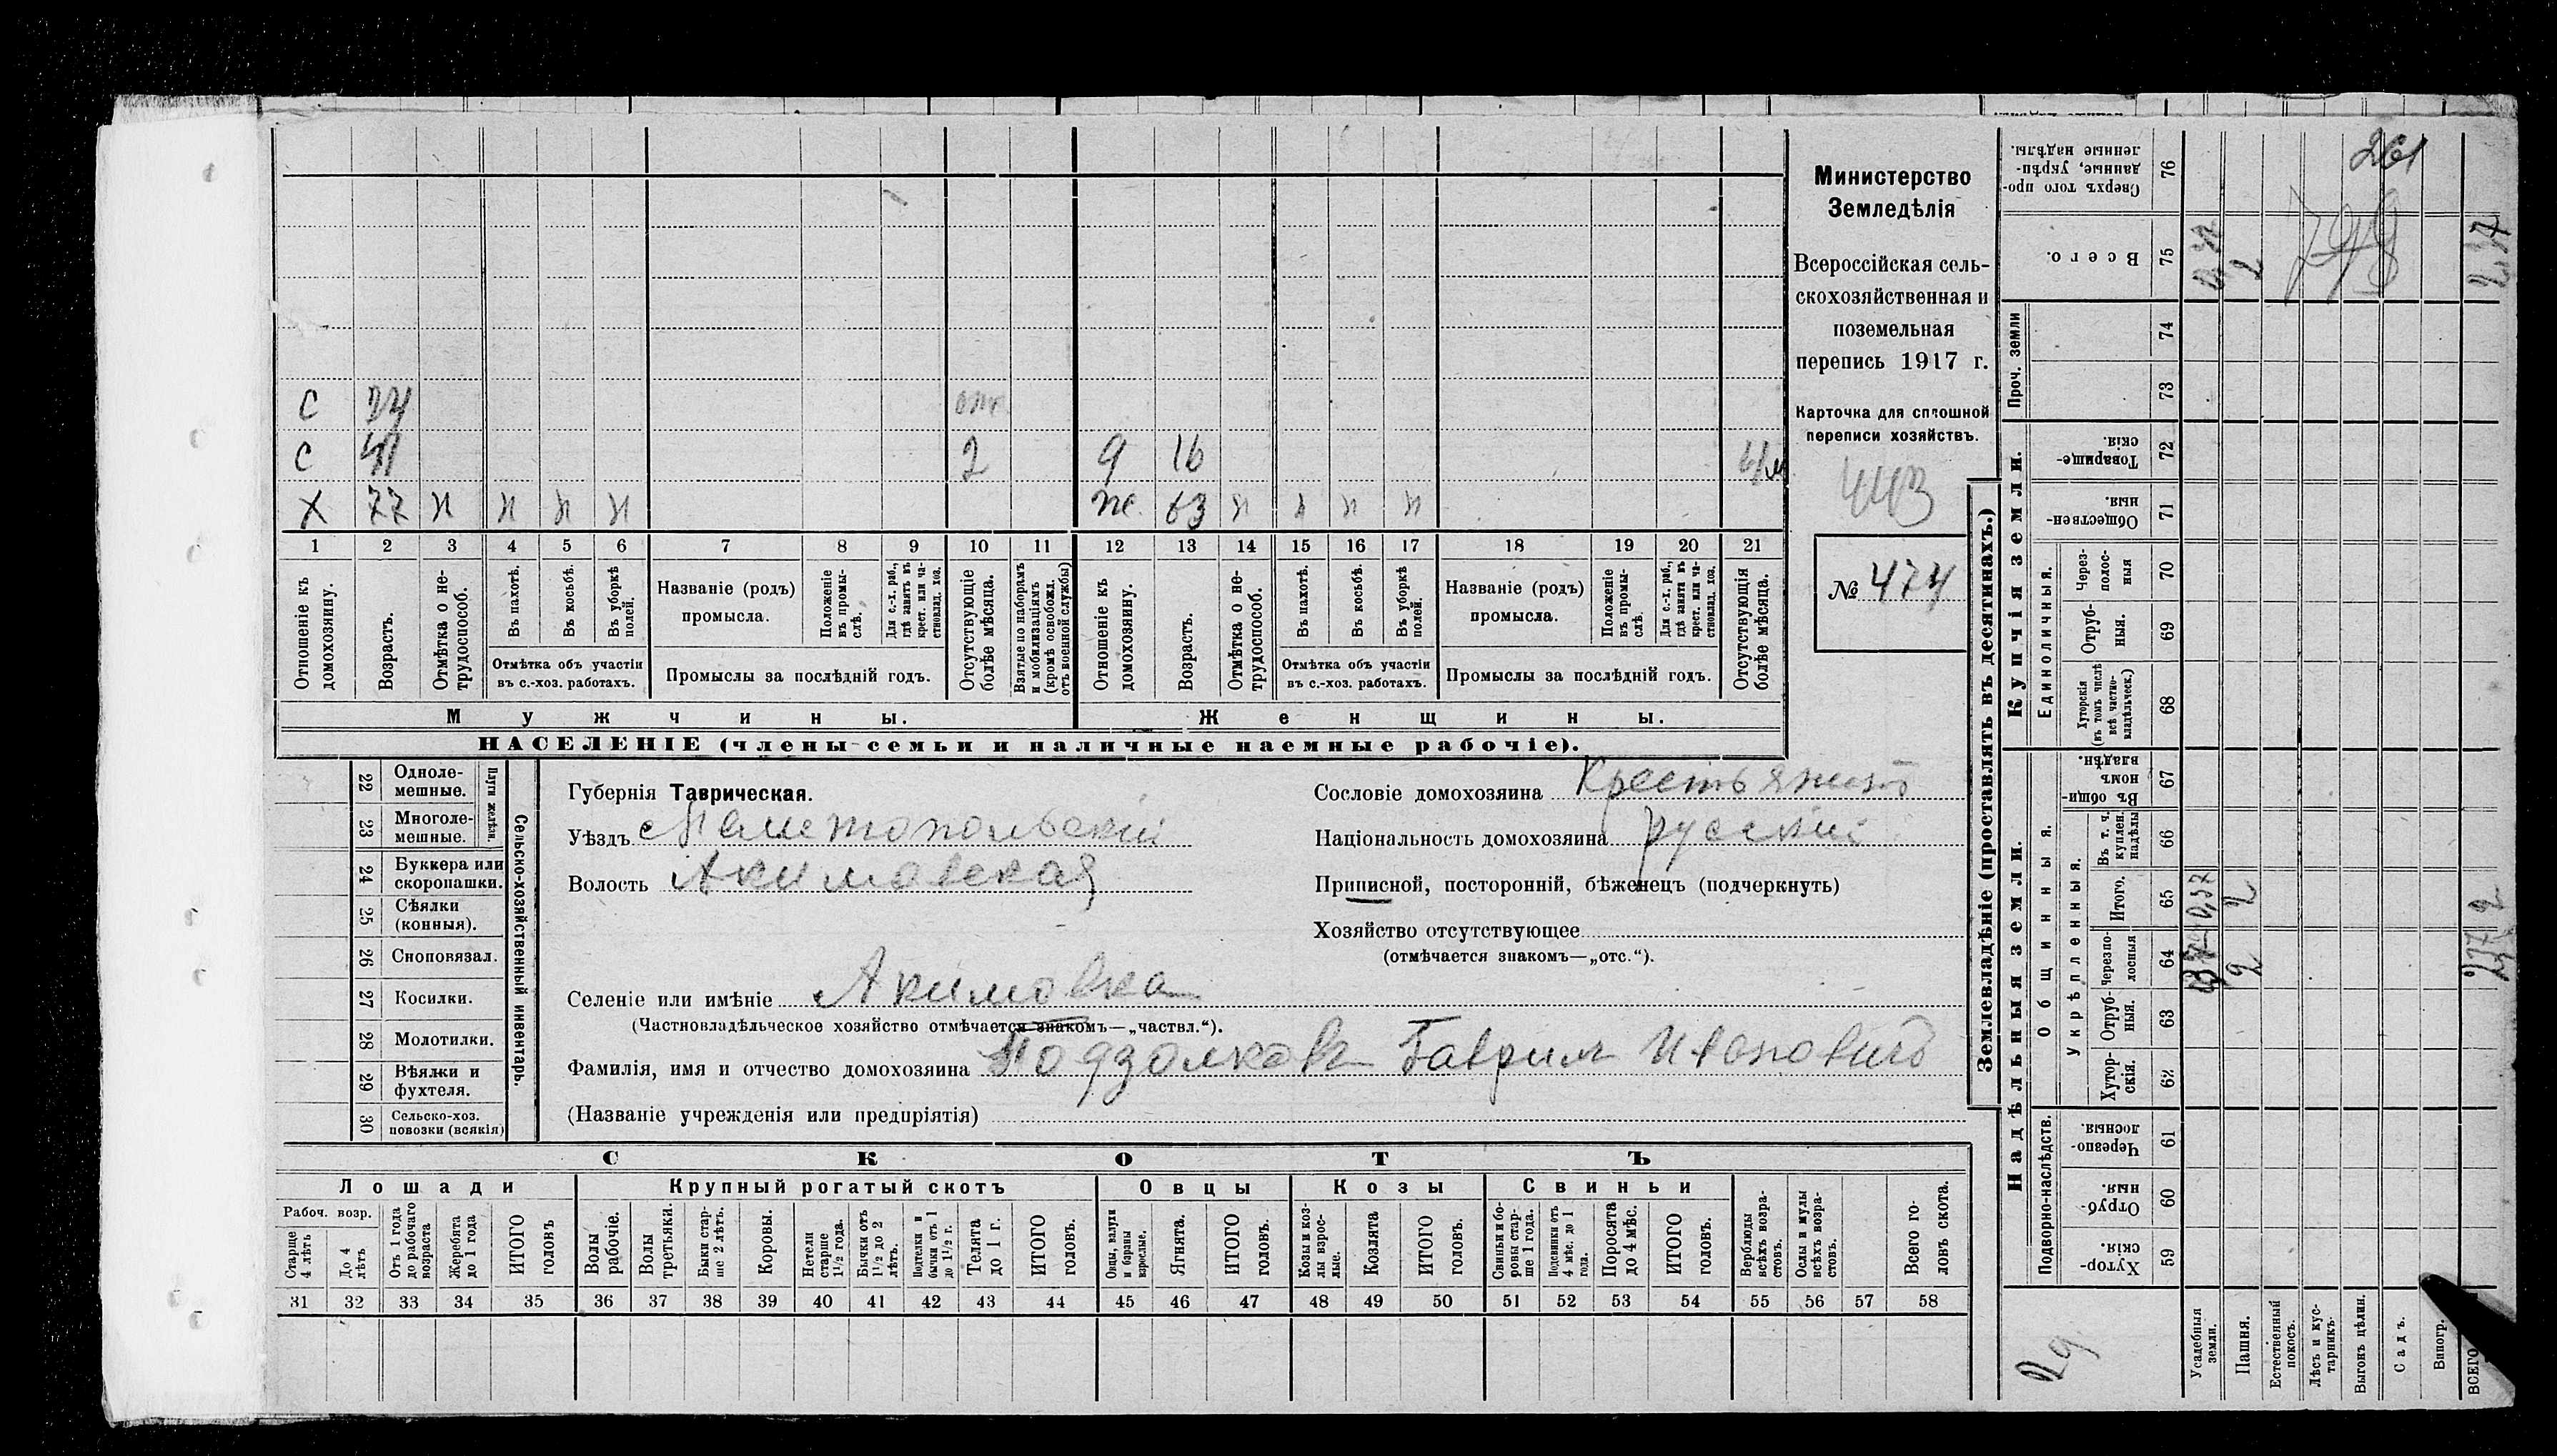 Министерство
Земледѣлія
Всероссійская сель-
скохозяйственная и
поземельная
перепись 1917 г.
Карточка для сплошной
переписи хозяйствъ.
443
№ 474
С
С 2
Х 77 н н н н
9 16
же. 63 н н н н
1 2 3 4 5 6 7 8 9 10 11 12 13 14 15 16 17 18 19 20 21
Отношеніе къ домохозяину.
Возрастъ.
Отмѣтка о не-трудоспособ.
Въ пахотѣ.
Въ косьбѣ.
Въ уборкѣ полей.
Отмѣтка объ участіи
въ с.-хоз. работахъ.
Названіе (родъ)
промысла.
Положеніе въ промы-слѣ.
Для с.-х. раб., гдѣ занятъ въ крест. или ча-стновлад. хоз.
Промыслы за послѣдній годъ.
Отсутствующіе болѣе мѣсяца.
Взятые по наборамъ и мобилизаціямъ (кромѣ освобожд. отъ военной службы)
Отношеніе къ домохозяину.
Возрастъ.
Отмѣтка о не-трудоспособ.
Въ пахотѣ.
Въ косьбѣ.
Въ уборкѣ полей.
Отмѣтка объ участіи
въ с.-хоз. работахъ.
Названіе (родъ)
промысла.
Положеніе въ промы-слѣ.
Для с.-х. раб., гдѣ занята въ крест. или ча-стновлад. хоз.
Промыслы за послѣдній годъ.
Отсутствующія болѣе мѣсяца.
Мужчины.
Женщины.
НАСЕЛЕНІЕ (члены семьи и наличные наемные рабочіе).
22 Одноле-мешные.
23 Многоле-мешные.
Плуги желѣзн.
24 Буккера или скоропашки.
25 Сѣялки (конныя).
26 Сноповязал.
27 Косилки.
28 Молотилки.
29 Вѣялки и фухтеля.
30 Сельско-хоз. повозки (всякія)
Сельско-хозяйственный инвентарь.
Губернія Таврическая.
Уѣздъ Мелитопольскій
Волость Акимовская
Селеніе или имѣніе Акимовка
(Частновладѣльческое хозяйство отмѣчается знакомъ—„частвл.“).
Фамилія, имя и отчество домохозяина Подзолковъ Гаврил Ивановичъ
(Названіе учрежденія или предпріятія)
Сословіе домохозяина Крестьянинъ
Національность домохозяина русскій
Приписной, посторонній, бѣженецъ (подчеркнуть)
Хозяйство отсутствующее
(отмѣчается знакомъ—„отс.“).
СКОТЪ
Лошади
Крупный рогатый скотъ
Овцы
Козы
Свиньи
Рабоч. возр.
Старше 4 лѣтъ
До 4 лѣтъ
Отъ 1 года до рабочаго возраста
Жеребята до 1 года
ИТОГО головъ
Волы рабочіе.
Волы третьяки.
Быки стар-ше 2 лѣтъ.
Коровы.
Нетели старше 1½ года.
Бычки отъ 1½ до 2 лѣтъ.
Подтелки и бычки отъ 1 до 1½ г.
Телята до 1 г.
ИТОГО головъ.
Овцы, валухи и бараны взрослые.
Ягнята.
ИТОГО головъ.
Козы и коз-лы взрос-лые.
Козлята
ИТОГО головъ.
Свиньи и бо-ровы стар-ше 1 года.
Подсвинки отъ 4 мѣс. до 1 года.
Поросята до 4 мѣс.
ИТОГО головъ.
Верблюды всѣхъ возра-стовъ.
Ослы и мулы всѣхъ возра-стовъ.
Всего го-ловъ скота.
31 32 33 34 35 36 37 38 39 40 41 42 43 44 45 46 47 48 49 50 51 52 53 54 55 56 57 58
Землевладѣніе (проставлять въ десятинахъ.)
Надѣльныя земли.
Купчія земли.
Проч. земли
Подворно-наслѣдств.
Общинныя.
Укрѣпленныя.
Единоличныя.
Сверхъ того про-данные, укрѣп-ленные надѣлы. 76
Всего. 75
74
73
Товарище-скія. 72
Обществен-ныя. 71
Через-полос-ныя 70
Отруб-ныя. 69
Хуторскія (въ томъ числѣ всѣ частно-владѣльческ.) 68
Въ общи-номъ владѣн. 67
Въ т. ч. куплен. надѣлы 66
Итого. 65
Черезпо-лосныя 64
Отруб-ныя. 63
Хутор-скія. 62
Черезпо-лосныя. 61
Отруб-ныя. 60
Хутор-скія. 59
Усадебныя земли.
Пашня.
Естественный покосъ.
Лѣсъ и кус-тарникъ.
Выгонъ цѣлин.
Садъ.
Виногр.
ВСЕГО
261
798
2
2,37
2
2
29